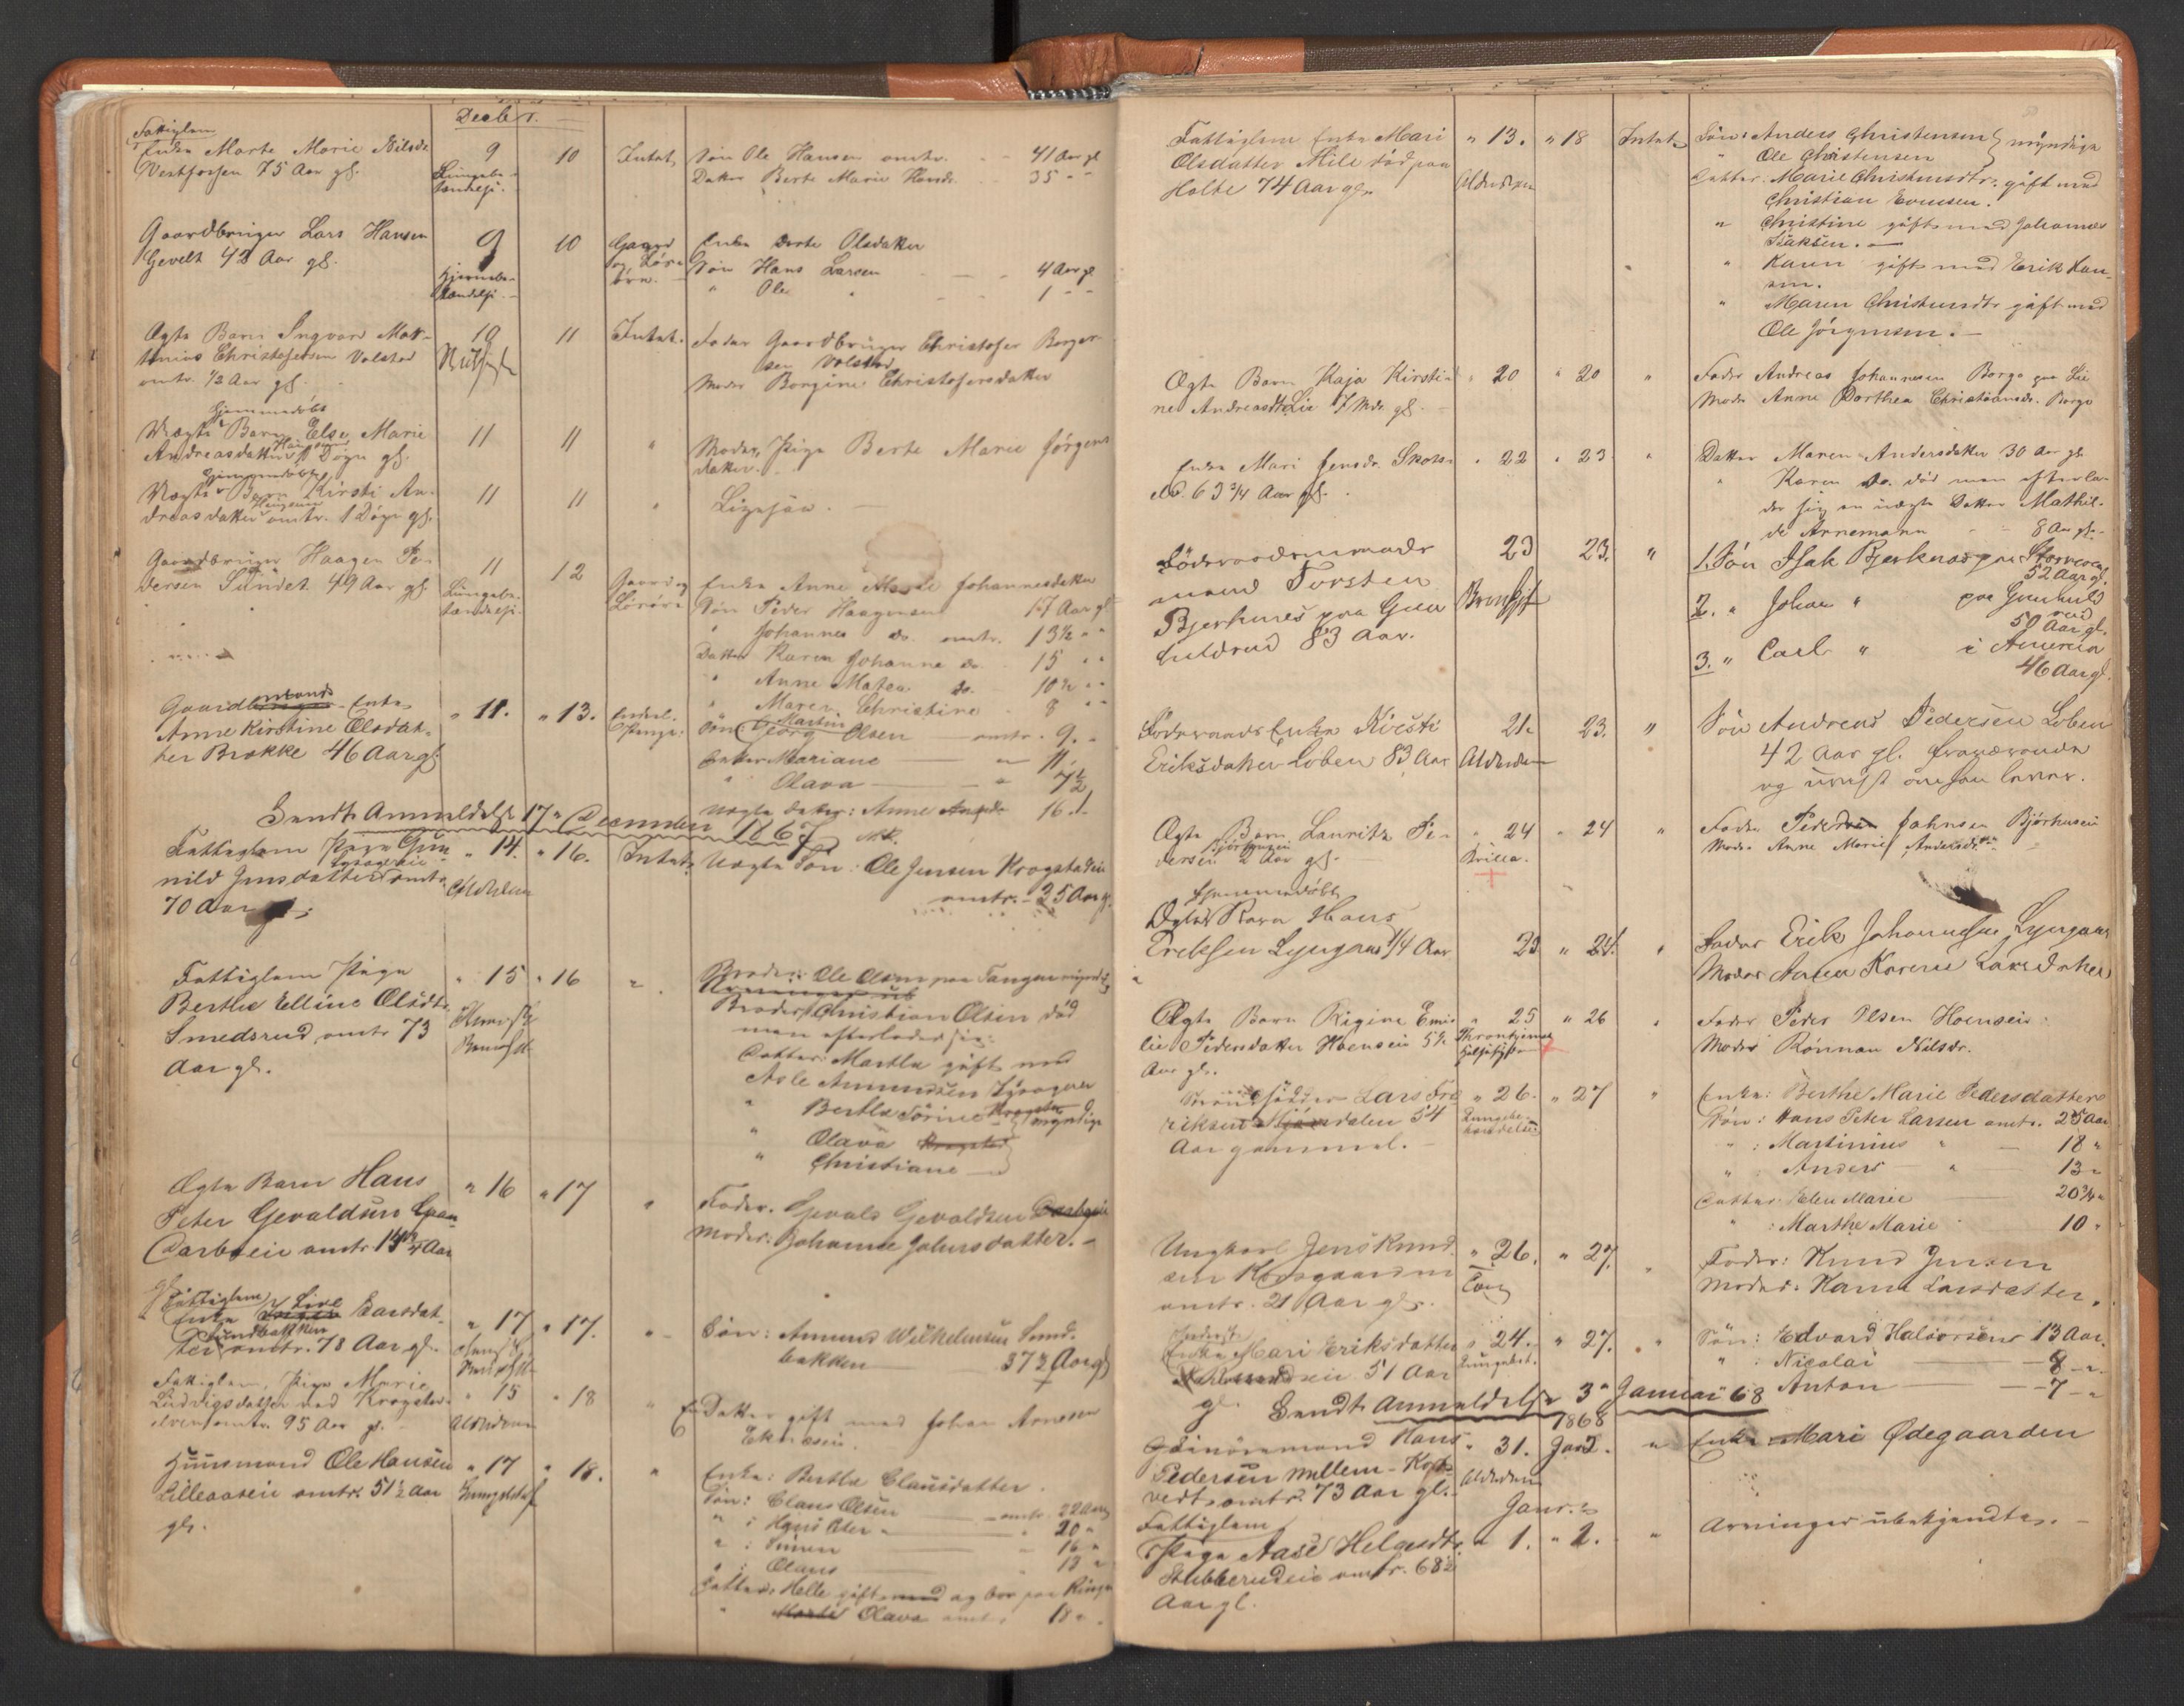 Decbr.
Fattiglem
Enke Marte Marie Nilsdr.
Vestfossen 75 Aar gl.
9
Lungebe-
tændelse.
10
Intet
Søn Ole Hansen omtr. 41 Aar gl
Datter Berte Marie Hansdr. 35 " "
Gaardbruger Lars Hansen
Gevelt 42 Aar gl.
9
Hjernebe-
tændelse.
10
Gaard
og Løs-
øre.
Enke Dorte Olsdatter
Søn Hans Larsen 4 Aar gl
" Ole " 1 " "
Ægte Barn Ingvar Mat-
tinius Christofersen Volstad
omtr. 1/2 Aar gl.
10
11
Intet.
Fader Gaardbruger Christofer Borger-
sen Volstad
Moder Borgine Christofersdatter
Hjemmedøbt
Uægte Barn Else Marie
Andreasdatter Haugsund 1 Døgn gl.
11
11
"
Moder, Pige Berte Maren Jørgens-
datter.
Hjemmedøbt
Uægte Barn Kirsti An-
dreasdatter Haugsund omtr. 1 Døgn gl.
11
11
"
Ligesaa.
Gaardbruger Haagen Pe-
dersen Sundet 49 Aar gl.
11
Lungebe-
tændelse.
12
Gaard og
Løsøre
Enke Anne Marie Johannesdatter
Søn Peder Haagensen 17 Aar gl
" Johannes do. omtr. 13½ " "
Datter Karen Johanne do. 15 " "
" Anne Matea do. 10½ " "
" Maren Christine 8 " "
Gaardmands Enke
Anne Kirstine Olsdat-
ter Brække 46 Aar gl.
" 11.
" 13.
Søn Georg Martin Olsen omtr. 9. "
Datter Mariane " 11.
" Olava " 7½
Uægte Datter: Anne 16.
Sendt Anmeldelse 17de December 1867
Fattiglem Pige Gun-
nild Jensdatter omtr.
70 Aar gl.
" 14.
Alderdom
" 16.
Intet.
Uægte Søn: Ole Jensen Krogstadeie
omtr. 25 Aar gl.
Fattiglem Pige
Berthe Elline Olsdtr.
Smedsrud, omtr 73
Aar gl.
" 15
" 16
"
Broder: Ole Olsen paa Tangen myndig
Broder Christian Olsen død
men efterlader sig:
Datter: Marthe gift med
Asle Amundsen
" Berthe Sørine myndige
" Olava
" Christiane
Ægte Barn Hans
Peter Gevaldsen
Darboeie omtr 14¾ Aar
gl.
" 16
" 17
"
Fader. Gevald Gevaldsen
Moder: Johanne Johnsdatter. -
Fattiglem
Enke Live Larsdat-
ter Sundbakken omtr. 78 Aar gl.
" 17
" 17.
"
Søn: Amund Wilhelmsen Sund-
bakken 37½ Aar gl
Fattiglem, Pige Marie
Ludvigsdatter ved Krogstad-
elven omtr. 95 Aar gl.
" 15
Alderdom
" 18
"
En Datter gift med Johan Arnesen
Ekneseie.
Huusmand Ole Hansen
Lilleaaseie omtr. 51½ Aar
gl.
" 17
" 18.
"
Enke: Berthe Clausdatter.
Søn: Claus Olsen omtr. 22 Aar
" : Hans Peter " 20 "
" : Simen 16 "
" : Olaus 13 "
Datter: Helle gift med og bor paa
" Olava omtr. 18 "
Fattiglem Enke Mari
Olsdatter Mile død paa
Holte 74 Aar gl.
" 13.
Alderdom
" 18
Intet
Søn: Anders Christensen } myndige
" Ole Christensen
Datter. Marie Christensdtr. gift med
Christian Evensen.
" Christine gift med Johannes
Isaksen. -
" Karen gift med Erik Han-
sen.
" Maren Christensdtr gift med
Ole Jörgensen. -
Ægte Barn Kaja Kirsti-
ne Andreasdtr Lie 7 Mdr. gl.
" 20
" 20
"
Fader Andreas Johannesen Borge paa Lie
Moder Anne Dorthea Christiansdr. Borge
Enke Mari Jensdr. Skots-
elv. 63¾ Aar gl.
" 22
" 23
"
Datter Maren Andersdatter 30 Aar gl.
" Karen do. død men efterla-
der sig en uægte Datter Mathil-
de Arnemann 8 Aar gl.
Föderaads
mand Torsten
Bjerknes paa Gun
hildrud 83 Aar.
23
23.
"
1. Søn Isak Bjerknes paa
52 Aar gl.
2. " Johan " paa Gunhild
rud
50 Aar gl.
3. " Carl " i America
46 Aar gl.
Föderaads Enke Kirsti
Eriksdatter Loben 83 Aar
21.
Alderdom
23.
"
Søn Andreas Pedersen Loben
42 Aar gl. fraværende
og uvist om han lever.
Ægte Barn Lauritz Pe-
dersen Bjørhuseie 2 Aar gl.
" 24
" 24
"
Fader Peder Johnsen Bjørhuseie
Moder Anne Marie Andersdr.
Hjemmedöbt
Ægte Barn Hans
Eriksen Lyngaas 1/4 Aar
23
" 24.
"
Fader Erik Johannesen Lyngaas
Moder Anne Karine Larsdatter
Ægte Barn Rigine Emi-
lie Pedersdatter Hoenseie 5½
Aar gl.
" 25
" 26
"
Fader Peder Olsen Hoenseie
Moder Rønnau Nilsdr.
Strandsidder Lars Fre-
riksen Mjøndalen 54
Aar gammel. -
" 26.
Lungebe-
tændelse
" 27
"
Enke: Berthe Marie Pedersdatter
Søn: Hans Peter Larsen omtr. 25 Aar
" : Martinius " 18 "
" : Anders " 13 "
Datter. Elen Marie 20¾ "
" : Marthe Marie 10 "
Ungkarl Jens Knud-
sen Krosgaarden
omtr. 21 Aar gl.
" 26.
" 27.
"
Fader: Knud Jensen
Moder: Karen Larsdatter.
Enke Mari Eriksdatter
51 Aar
gl.
" 24.
" 27.
"
Søn: Edvard Halvorsen 13 Aar
" : Nicolai 8 "
Anton 7 "
Sendt Anmeldelse 3de Januar 68
1868
Hans
Pedersen Mellem-Kop-
vedt omtr. 73 Aar gl.
" 31.
Alderdom
Jan 2.
"
Enke Mari Ødegaarden
Fattiglem
Pige Aase Helgesdtr.
Stubberudeie omtr. 68½
Aar gl.
Janr.
" 1.
" 2.
"
Arvinger ubekjendte. -